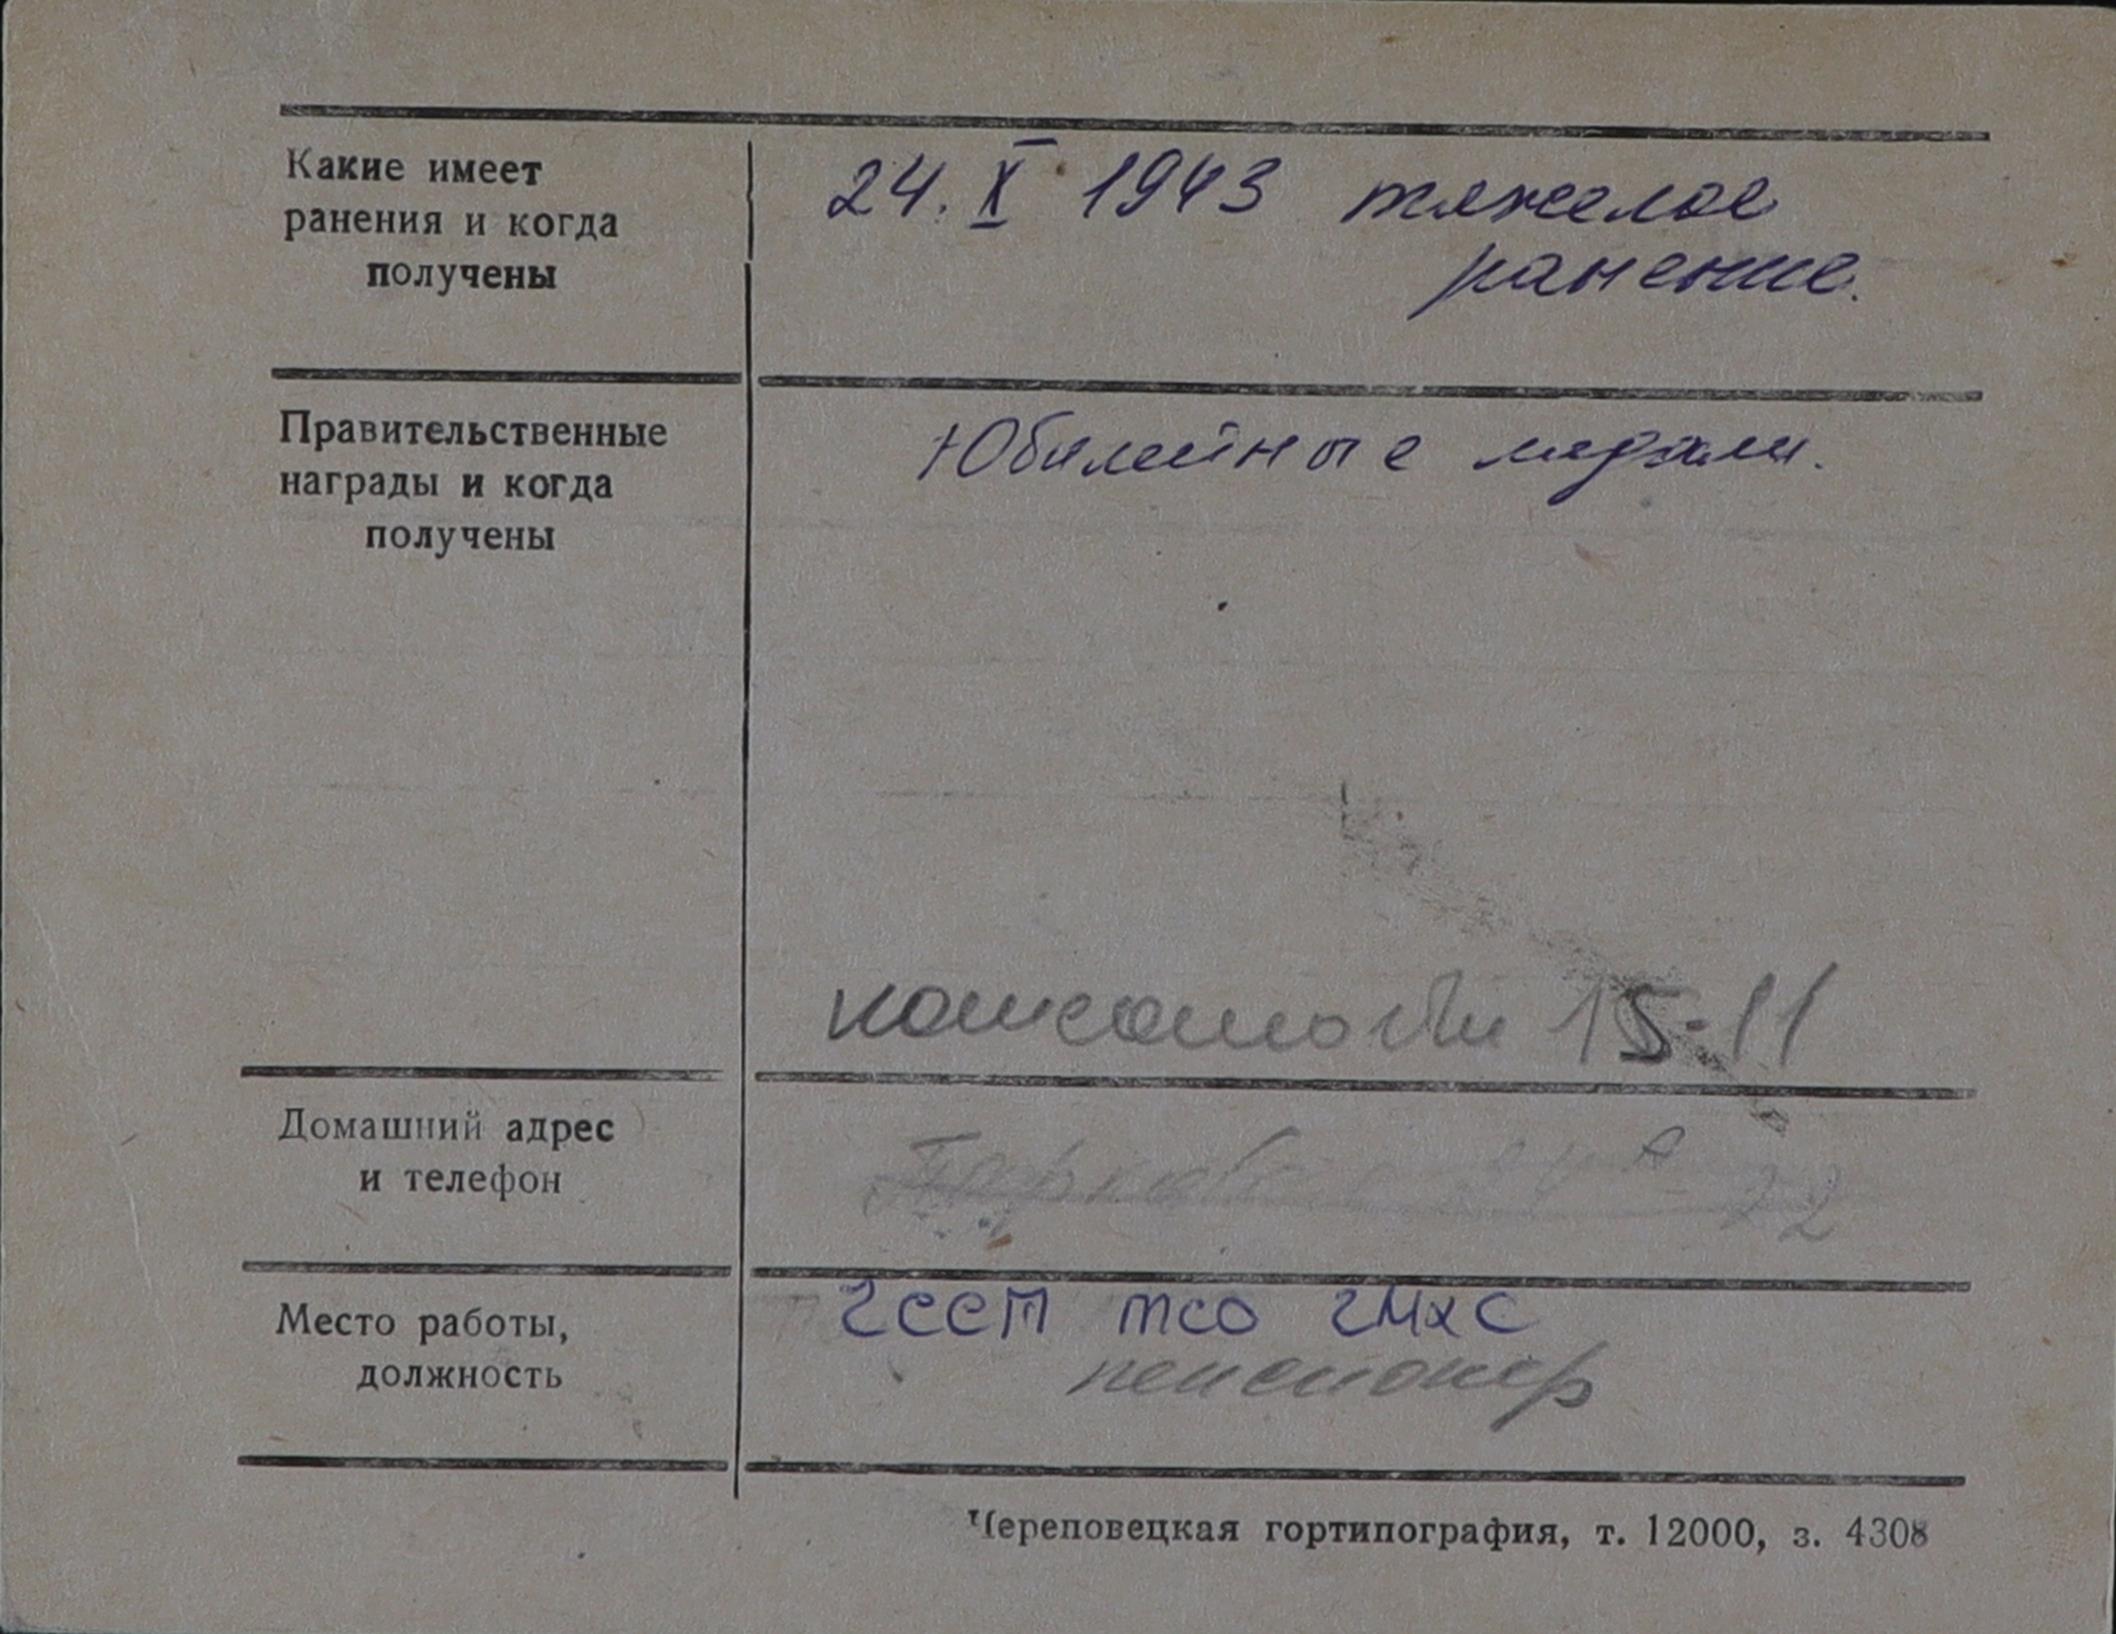 Какие имеет
ранения и когда
получены
24. X 1943 тяжелое
ранение.
Правительственные
награды и когда
получены
Юбилейные медали.
15-11
Домашний адрес
и телефон
22
Место работы,
должность
ГССП ТСО ГМХС
пенсионер
Череповецкая гортипография, т. 12000, з. 4308